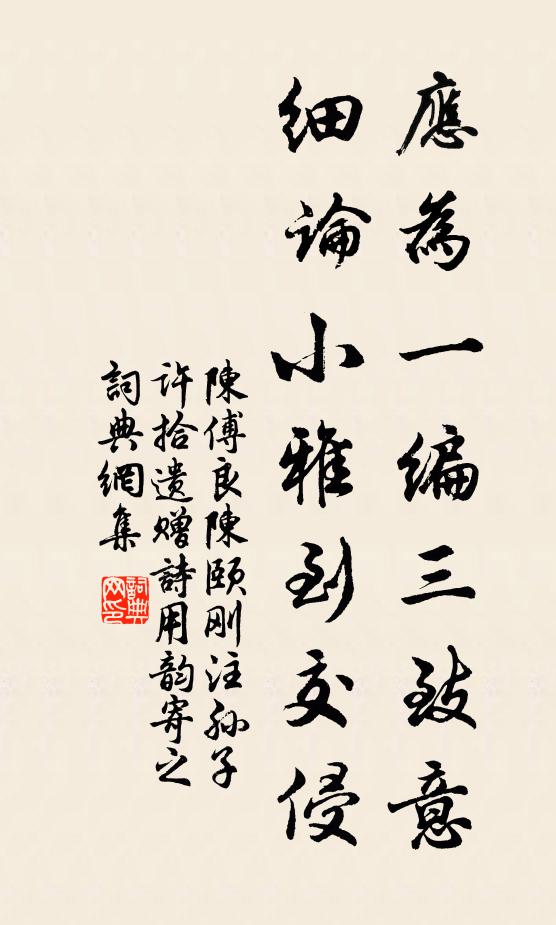 應為一編三致意
細論小雅到交侵
陳傅良陳頤刚注孙子
许拾遗赠詩用韵寄之
詞典網集
詞典網印